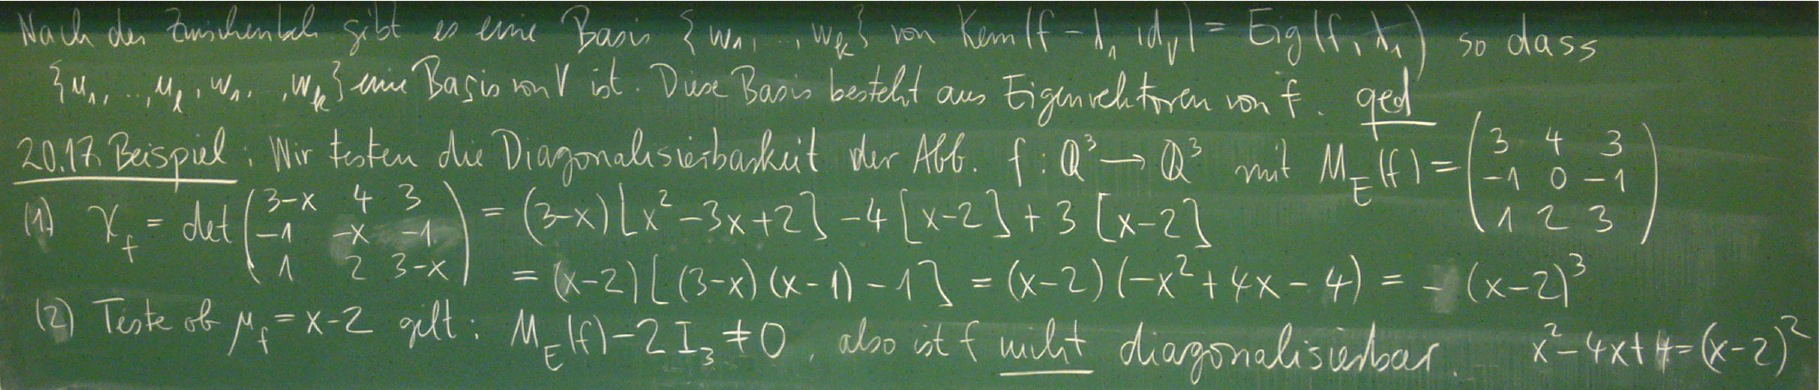 Nach der Zwischenbeh. gibt es eine Basis {w₁, .., w_k} von Kern(f - λ₁ id_V) = Eig(f, λ₁) so dass
{u₁, .., u_ℓ, w₁, .., w_k} eine Basis von V ist. Diese Basis besteht aus Eigenvektoren von f. qed
20.17 Beispiel: Wir testen die Diagonalisierbarkeit der Abb. f: ℚ³ → ℚ³ mit M_E(f) = (3 4 3; -1 0 -1; 1 2 3)
(1) χ_f = det(3-x 4 3; -1 -x -1; 1 2 3-x) = (3-x)[x² - 3x + 2] - 4[x-2] + 3[x-2]
= (x-2)[(3-x)(x-1) - 1] = (x-2)(-x² + 4x - 4) = - (x-2)³
(2) Teste ob μ_f = x-2 gilt: M_E(f) - 2I₃ ≠ 0, also ist f nicht diagonalisierbar. x² - 4x + 4 = (x-2)²